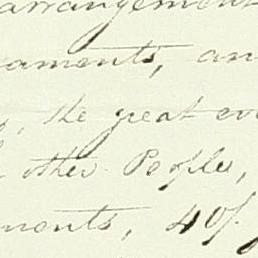 arrangement
aments, an
, the great ev
other People,
ments, 40/.